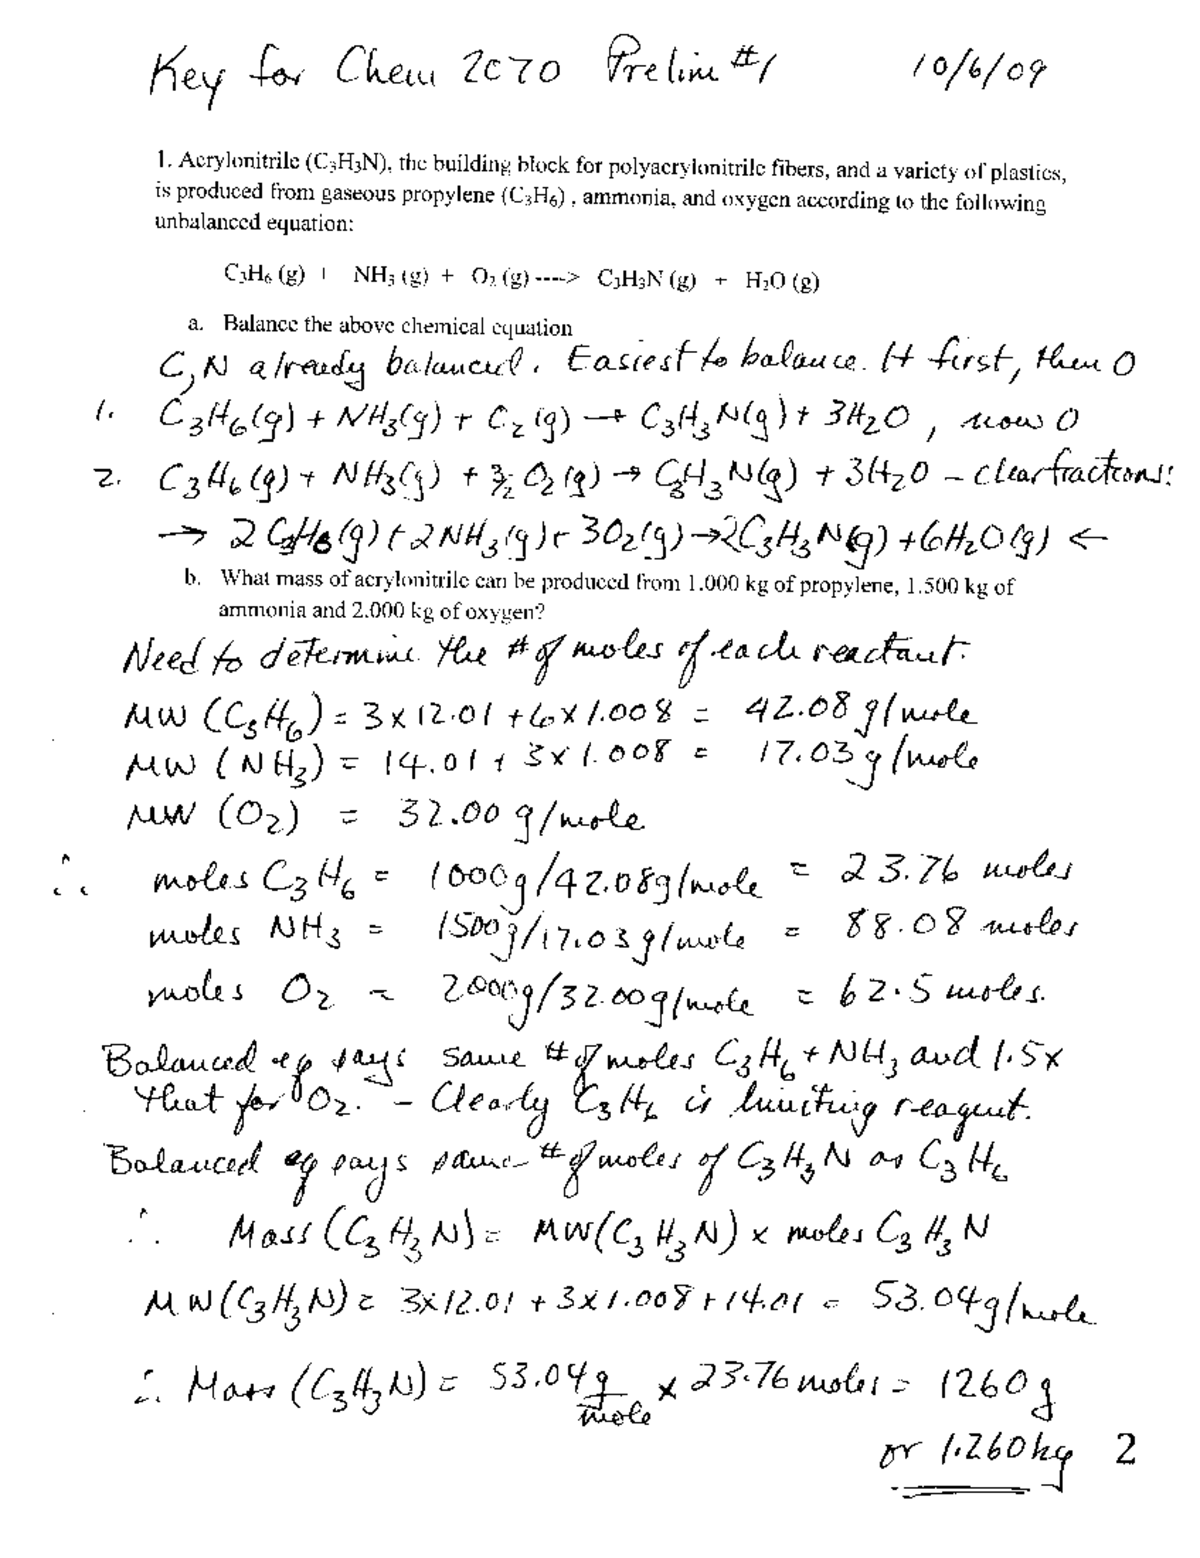 Key for Chem 2070 Prelim #1 10/6/09
1. Acrylonitrile (C₃H₃N), the building block for polyacrylonitrile fibers, and a variety of plastics,
is produced from gaseous propylene (C₃H₆) , ammonia, and oxygen according to the following
unbalanced equation:
C₃H₆ (g) + NH₃ (g) + O₂ (g) ----> C₃H₃N (g) + H₂O (g)
a. Balance the above chemical equation
C, N already balanced. Easiest to balance H first, then O
1. C₃H₆(g) + NH₃(g) + O₂(g) → C₃H₃N(g) + 3H₂O , now O
2. C₃H₆(g) + NH₃(g) + 3/2 O₂(g) → C₃H₃N(g) + 3H₂O – clear fractions:
→ 2 C₃H₆(g) + 2NH₃(g) + 3O₂(g) → 2C₃H₃N(g) + 6H₂O(g) ←
b. What mass of acrylonitrile can be produced from 1.000 kg of propylene, 1.500 kg of
ammonia and 2.000 kg of oxygen?
Need to determine the # of moles of each reactant.
MW (C₃H₆) = 3 x 12.01 + 6 x 1.008 = 42.08 g/mole
MW (NH₃) = 14.01 + 3 x 1.008 = 17.03 g/mole
MW (O₂) = 32.00 g/mole
∴ moles C₃H₆ = 1000g/42.08g/mole = 23.76 moles
moles NH₃ = 1500g/17.03g/mole = 88.08 moles
moles O₂ = 2000g/32.00g/mole = 62.5 moles.
Balanced eq says same # of moles C₃H₆ + NH₃ and 1.5x
that for O₂. – Clearly C₃H₆ is limiting reagent.
Balanced eq says same # of moles of C₃H₃N as C₃H₆
∴ Mass (C₃H₃N) = MW(C₃H₃N) x moles C₃H₃N
MW(C₃H₃N) = 3x12.01 + 3x1.008 + 14.01 = 53.04g/mole
∴ Mass (C₃H₃N) = 53.04 g/mole x 23.76 moles = 1260 g
or 1.260 kg 2